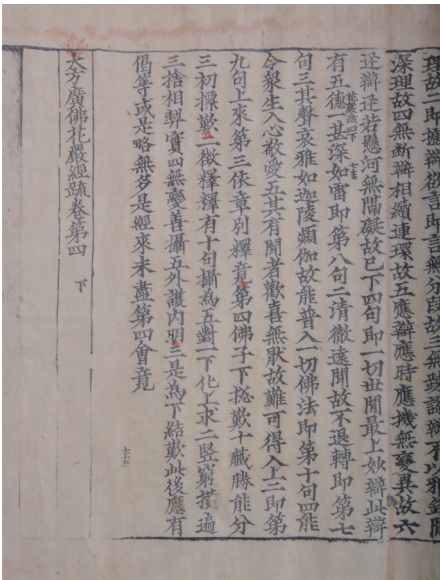 理故二即捷辯欲言即言無分段故三無疏謬辯
深理故四無断辯相續連環故五應辯應時應機無變異故六
迅辯迅若懸河無閡礙故已下四句即一切世閒最上妙辯此辯
有五德一甚深如雷即第八句二清徹遠聞故不退轉即第七
句三其聲哀雅如迦陵頻伽故能普入一切佛法即第十句四能
令衆生入心敬愛五其有聞者歡喜無猒故難可得入上三即第
九句上來第三依章別釋竟第四佛子下揔歎十藏勝能分
三初標歎二徴釋釋有十句攝為五對一下化上求二竪窮撗遍
三捨相契實四無變善攝五外護内明三是為下結歎此後應有
偈等或是略無多是經來未盡第四會竟
大方廣佛花嚴經䟽卷第四 下